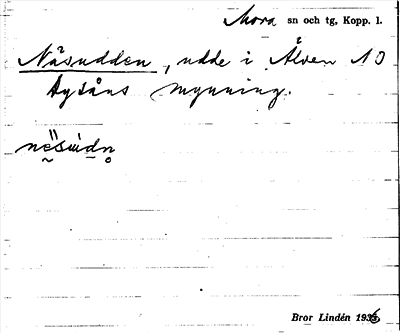 Mora sn och tg, Kopp. l.
Näsudden, udde i Älven NO
Aysåns mynning.
Bror Lindén 1935